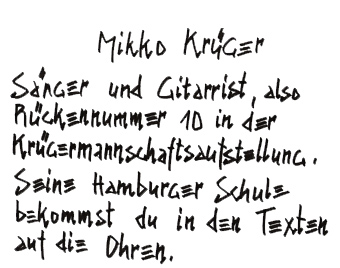 Mikko Krüger
Sänger und Gitarrist, also
Rückennummer 10 in der
Krügermannschaftsaufstellung.
Seine Hamburger Schule
bekommst du in den Texten
auf die Ohren.